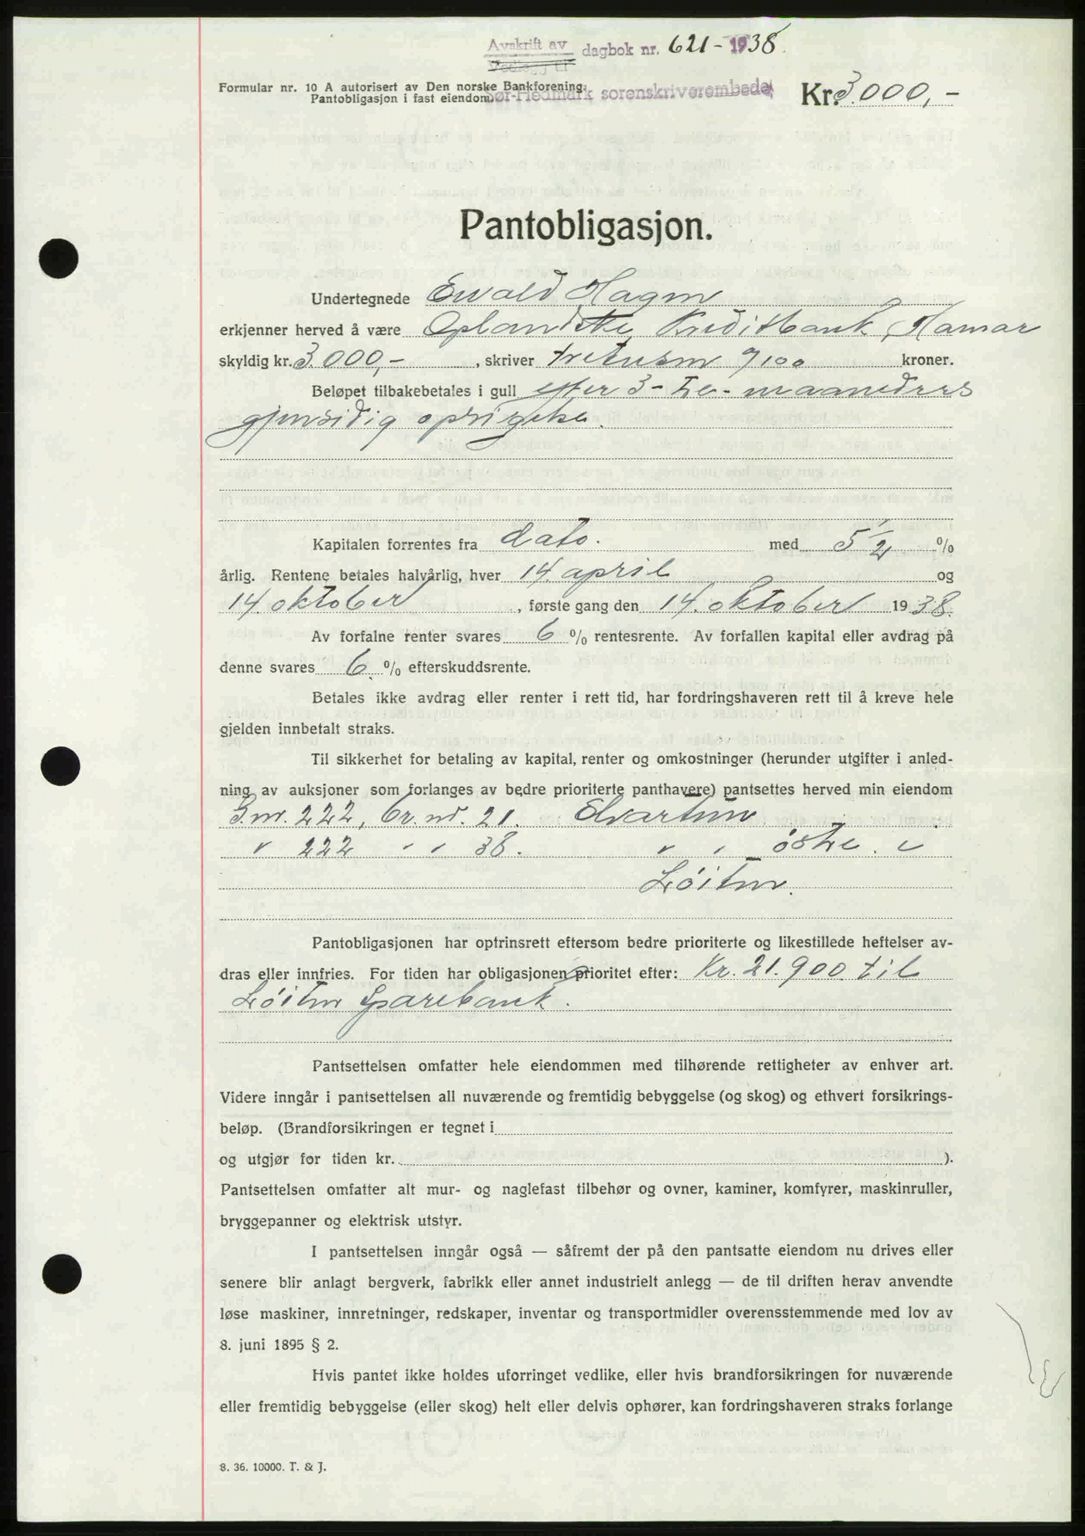 Avskrift av dagbok nr. 621 - 1938.
Vedlegg til
Formular nr. 10 A autorisert av Den norske Bankforening.
Pantobligasjon i fast eiendom.
Sør-Hedmark sorenskriverembedet
Kr. 3.000,-
Pantobligasjon.
Undertegnede Ewald Hagen
erkjenner herved å være Oplandske Kreditbank, Hamar
skyldig kr. 3.000,- , skriver tretusen 0/100 kroner.
Beløpet tilbakebetales i gull efter 3 - tre - maaneders
gjensidig opsigelse.
Kapitalen forrentes fra dato. med 5 1/2 %
årlig. Rentene betales halvårlig, hver 14. april og
14. oktober , første gang den 14. oktober 1938.
Av forfalne renter svares 6 % rentesrente. Av forfallen kapital eller avdrag på
denne svares 6 % efterskuddsrente.
Betales ikke avdrag eller renter i rett tid, har fordringshaveren rett til å kreve hele
gjelden innbetalt straks.
Til sikkerhet for betaling av kapital, renter og omkostninger (herunder utgifter i anled-
ning av auksjoner som forlanges av bedre prioriterte panthavere) pantsettes herved min eiendom
G.nr. 222, br. nr. 21. Elvartun
" 222 " " 38. " " østre. i
Løiten.
Pantobligasjonen har optrinsrett eftersom bedre prioriterte og likestillede heftelser av-
dras eller innfries. For tiden har obligasjonen prioritet efter: Kr. 21.900 til
Løiten Sparebank.
Pantsettelsen omfatter hele eiendommen med tilhørende rettigheter av enhver art.
Videre inngår i pantsettelsen all nuværende og fremtidig bebyggelse (og skog) og ethvert forsikrings-
beløp. (Brandforsikringen er tegnet i
og utgjør for tiden kr. ).
Pantsettelsen omfatter alt mur- og naglefast tilbehør og ovner, kaminer, komfyrer, maskinruller,
bryggepanner og elektrisk utstyr.
I pantsettelsen inngår også — såfremt der på den pantsatte eiendom nu drives eller
senere blir anlagt bergverk, fabrikk eller annet industrielt anlegg — de til driften herav anvendte
løse maskiner, innretninger, redskaper, inventar og transportmidler overensstemmende med lov av
8. juni 1895 § 2.
Hvis pantet ikke holdes uforringet vedlike, eller hvis brandforsikringen for nuværende
eller fremtidig bebyggelse (eller skog) helt eller delvis ophører, kan fordringshaveren straks forlange
8. 36. 10000. T. & J.